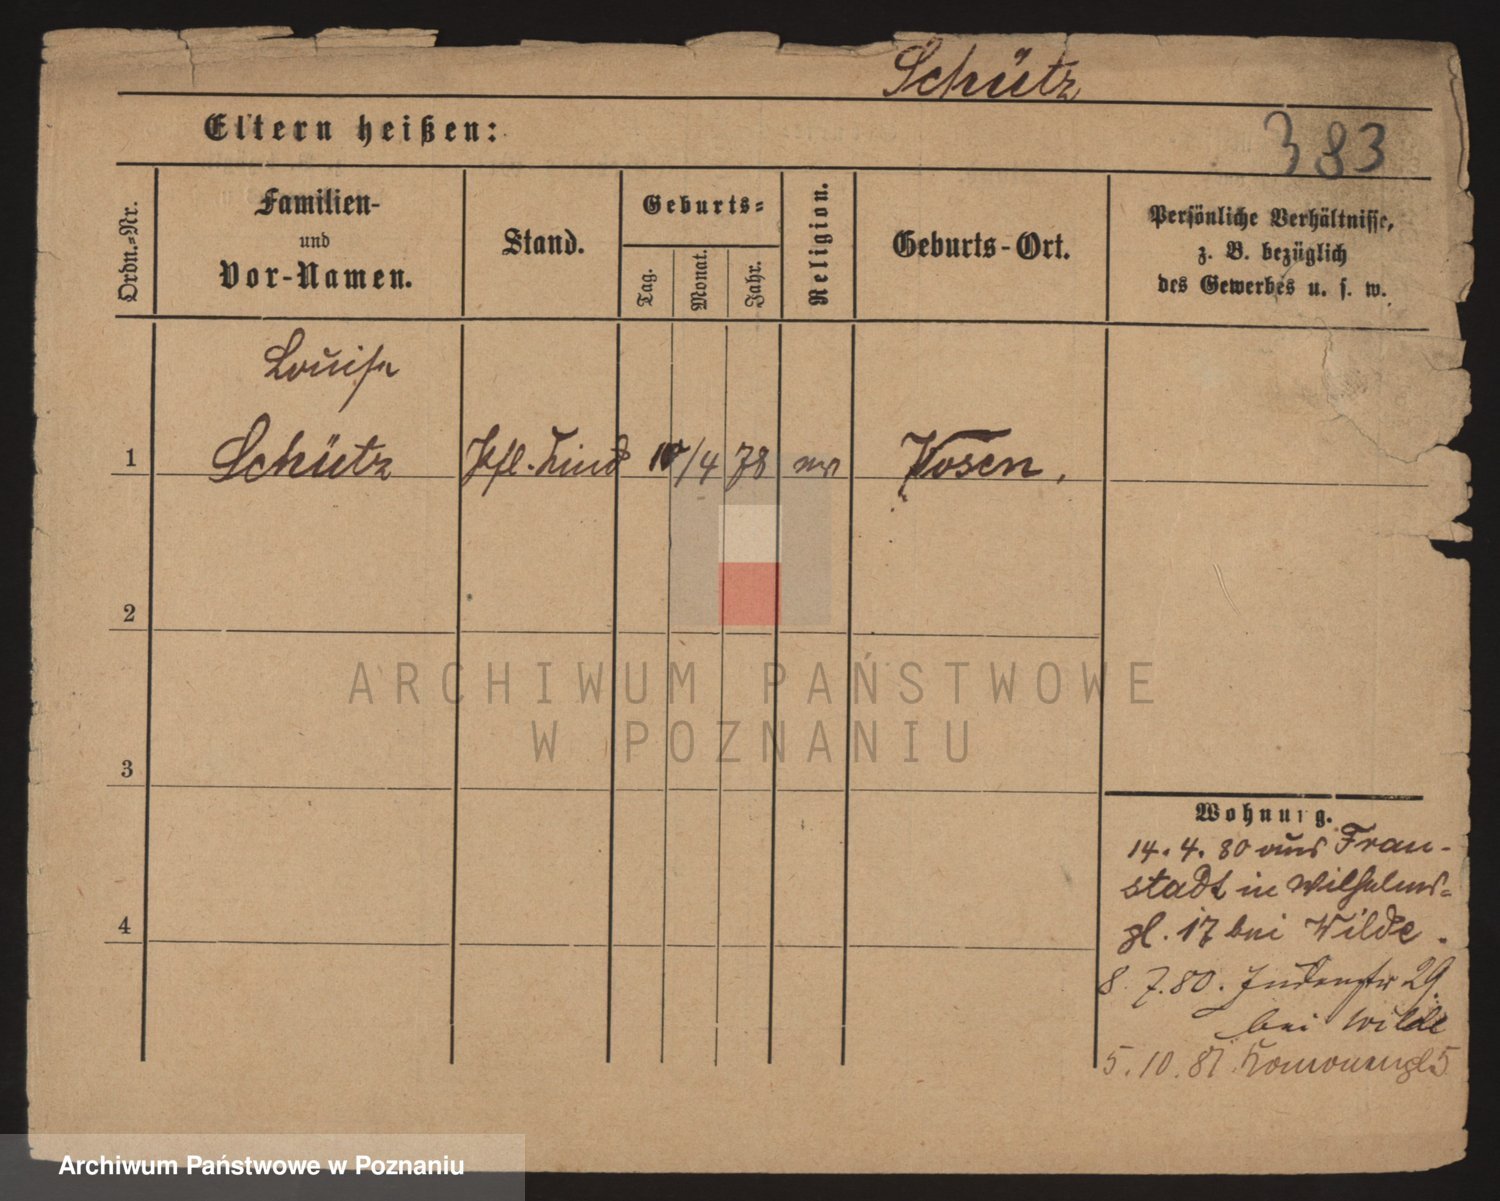 Schütz
Eltern heißen:
383
Ordn.-Nr.
Familien-
und
Vor-Namen.
Stand.
Geburts-
Tag.
Monat.
Jahr.
Religion.
Geburts-Ort.
Persönliche Verhältnisse,
z. B. bezüglich
des Gewerbes u. s. w.
Louise
1 Schütz Pfl. Kind 10/4 78 ev Posen,
2
3
4
Wohnung.
14. 4. 80 aus Frau-
stadt in Wilhelms-
pl. 17 bei Wilde.
8. 7. 80. Judenstr 29
bei Wilde
5. 10. 81. Kanonenpl 5
ARCHIWUM PAŃSTWOWE
W POZNANIU
Archiwum Państwowe w Poznaniu